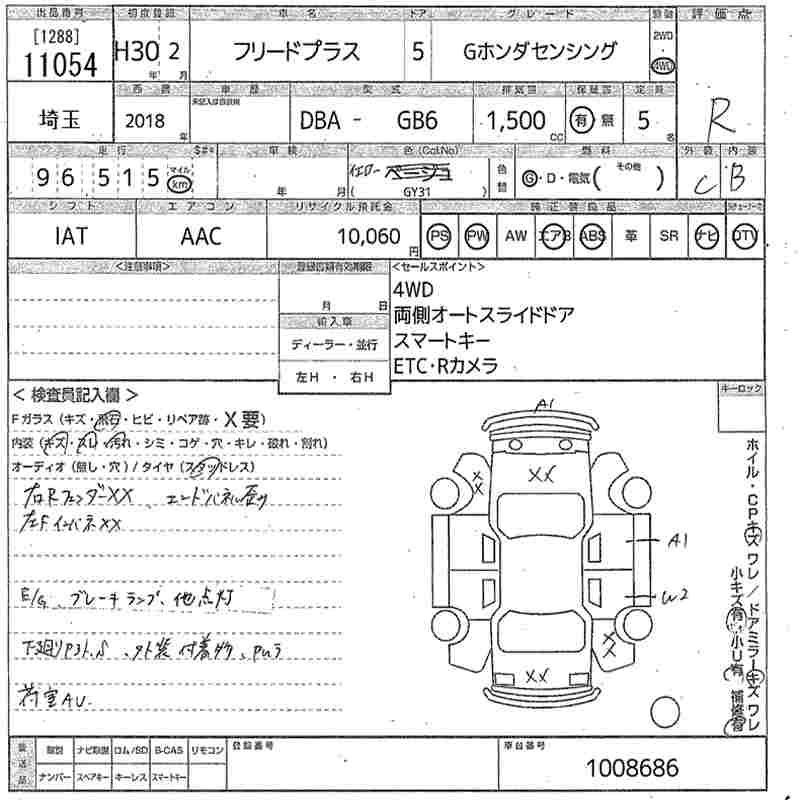 出品番号 初度登録 車名 ドア グレード 評価点
[1288]
11054 H30年 2月 フリードプラス 5 Gホンダセンシング 2WD 4WD
西暦 車歴 型式 排気量 保証書 定員
埼玉 2018年 DBA - GB6 1,500CC 有・無 5名 R
走行 車検 色(Col.No) 燃料 外装 内装
96,515 マイル km 年 月 ベージュ ( GY31 ) 色替 G・D・電気( その他 ) C B
シフト エアコン リサイクル預託金 純正装備品
IAT AAC 10,060円 PS PW AW エアB ABS 革 SR ナビ TV
<注意事項> 登録書類有効期限 <セールスポイント>
月 日 4WD
輸入車 両側オートスライドドア
ディーラー・並行 スマートキー
左H ・ 右H ETC・Rカメラ
< 検査員記入欄 > キーロック
Fガラス (キズ・飛石・ヒビ・リペア跡・X要)
内装 (キズ・スレ・汚れ・シミ・コゲ・穴・キレ・破れ・割れ)
オーディオ (無し・穴) / タイヤ (スタッドレス)
右Rフェンダー XX 、エンドパネル歪り
左FインパネXX
E/G、ブレーキランプ、他点灯
下廻り 、外装 付着物、
荷室AU.
A1
XX
XX
A1
W2
XX
XX
ホイル・CPキズ ワレ / ドアミラーキズ ワレ
小キズ有 小U有 補修有
後送品 取説 ナビ取説 ロム/SD B-CAS リモコン 登録番号 車台番号
ナンバー スペアキー キーレス スマートキー 1008686